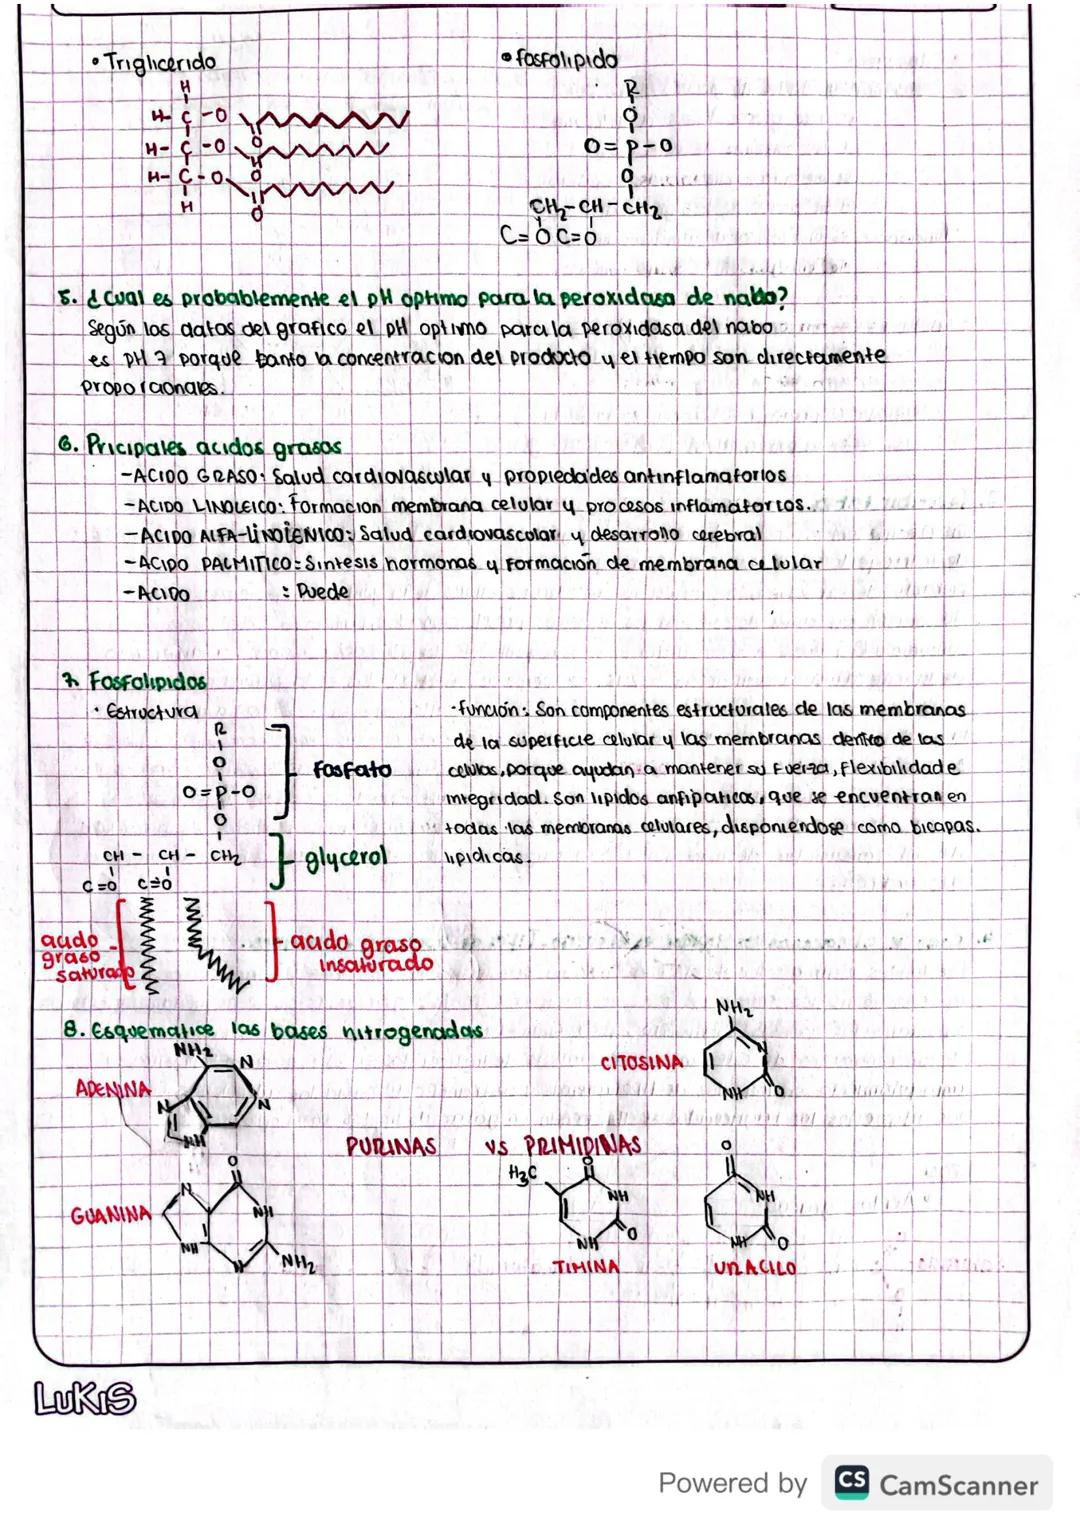 • Triglicerido
• fosfolipido
H
H- C -O
H- C -O
H- C - O
H
O
O
O
R
O
O= P-O
O
CH2-CH-CH2
C=O C=O
5. ¿Cual es probablemente el pH optimo para la peroxidasa de nabo?
Según los datos del grafico el pH optimo para la peroxidasa del nabo
es pH 7 porque tanto la concentracion del producto y el tiempo son directamente
proporcionales.
6. Pricipales acidos grasos
-ACIDO GRASO: Salud cardiovascular y propiedades antinflamatorios
-ACIDO LINOLEICO: Formacion membrana celular y procesos inflamatorios.
-ACIDO ALFA-LINOLENICO: Salud cardiovascular y desarrollo cerebral
-ACIDO PALMITICO: Sintesis hormonas y formación de membrana celular
-ACIDO : Puede
7. Fosfolipidos
• Estructura
R
O
O=P-O
O
CH - CH - CH2
C=O C=O
fosfato
glycerol
acido graso saturado
acido graso insaturado
-función: Son componentes estructurales de las membranas
de la superficie celular y las membranas dentro de las
celulas, porque ayudan a mantener su fuerza, flexibilidad e
integridad. Son lipidos anfipaticos, que se encuentran en
todas las membranas celulares, disponiendose como bicapas.
lipidicas.
8. Esquematice las bases nitrogenadas
ADENINA
NH2
N
N
N
NH
CITOSINA
NH2
N
NH
O
PURINAS VS PRIMIDINAS
GUANINA
O
N
NH
NH
N
NH2
H3C
O
NH
NH
O
TIMINA
O
NH
NH
O
URACILO
LUKIS
Powered by CS CamScanner